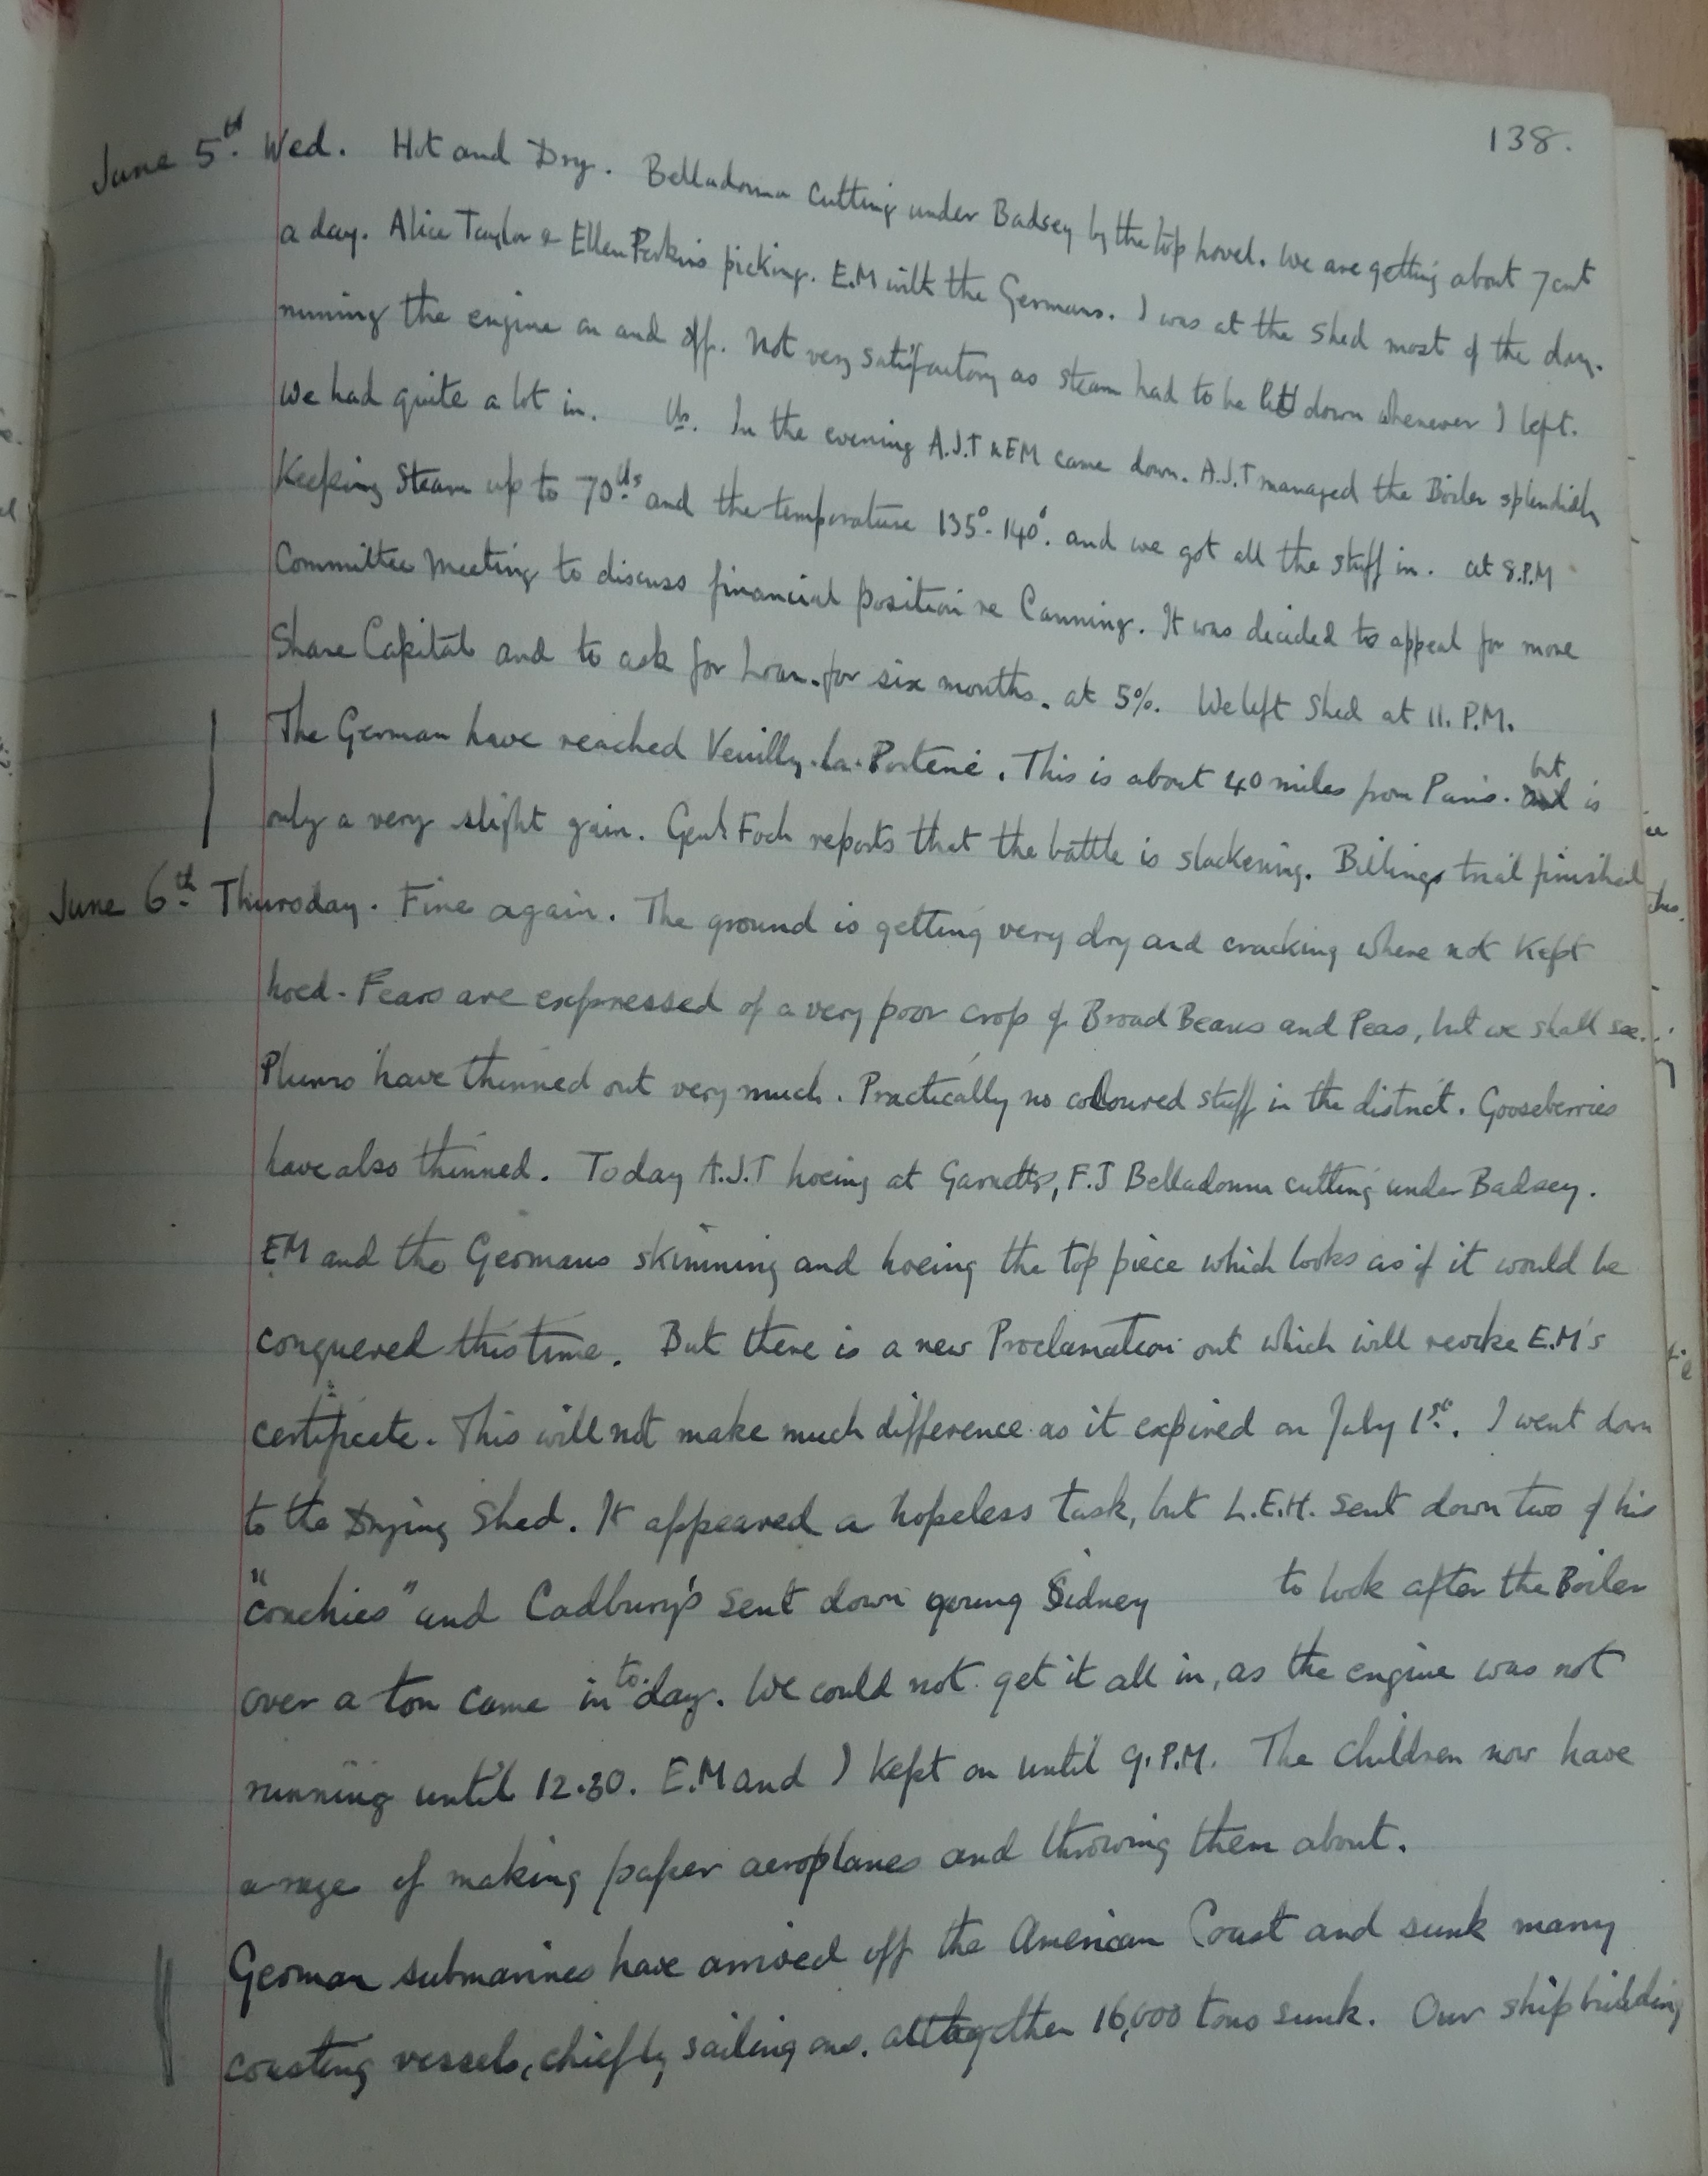 138.
June 5th. Wed. Hot and Dry. Belladonna Cutting under Badsey by the top hovel. We are getting about 7 cwt
a day. Alice Taylor & Ellen Perkins picking. E.M with the Germans. I was at the shed most of the day.
running the engine on and off. Not very satisfactory as steam had to be let down whenever I left.
We had quite a lot in. In the evening A.J.T & EM came down. A.J.T managed the Boiler splendidly
Keeping Steam up to 70 lbs and the temperature 135°-140°. and we got all the stuff in. at 8.P.M
Committee Meeting to discuss financial position re Canning. It was decided to appeal for more
Share Capital and to ask for Loan. for six months. at 5%. We left Shed at 11. P.M.
The German have reached Veuilly-la-Poterie. This is about 40 miles from Paris. but is
only a very slight gain. Genl Foch reports that the battle is slackening. Billings trial finished
June 6th Thursday. Fine again. The ground is getting very dry and cracking where not kept
hoed. Fears are expressed of a very poor crop of Broad Beans and Peas, but we shall see.
Plums have thinned out very much. Practically no coloured stuff in the district. Gooseberries
have also thinned. Today A.J.T hoeing at Garnetts, F.J Belladonna cutting under Badsey.
EM and the Germans skimming and hoeing the top piece which looks as if it would be
conquered this time. But there is a new Proclamation out which will revoke E.M's
certificate. This will not make much difference as it expired on July 1st. I went down
to the Drying Shed. It appeared a hopeless task, but L.E.H. sent down two of his
"conchies" and Cadbury's sent down young Sidney to look after the Boiler
over a ton came in to.day. We could not get it all in, as the engine was not
running until 12.30. E.M and I kept on until 9.P.M. The children now have
a rage of making paper aeroplanes and throwing them about.
German submarines have arrived off the American Coast and sunk many
coasting vessels, chiefly sailing ones. altogether 16,000 tons sunk. Our shipbuilding